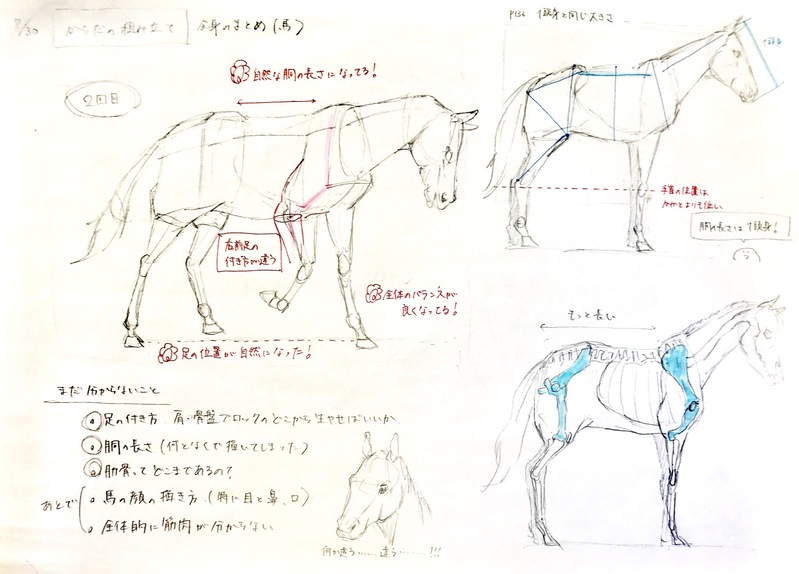 7/30 からだの組み立て 全身のまとめ(馬)
2回目
自然な胴の長さになってる!
右前足の
付き方が違う
全体のバランスが
良くなってる!
足の位置が自然になった!
まだ分からないこと
足の付き方 肩・骨盤ブロックのどこから生やせばいいか
胴の長さ(何となくで描いてしまった)
肋骨ってどこまであるの?
あとで
馬の顔の描き方(特に目と鼻、口)
全体的に筋肉が分からない
何か違う……違う……!!!
P136 1頭身と同じ大きさ
1頭身
手首の位置は
かかとよりも低い
胴の長さは1頭身!
もっと長い